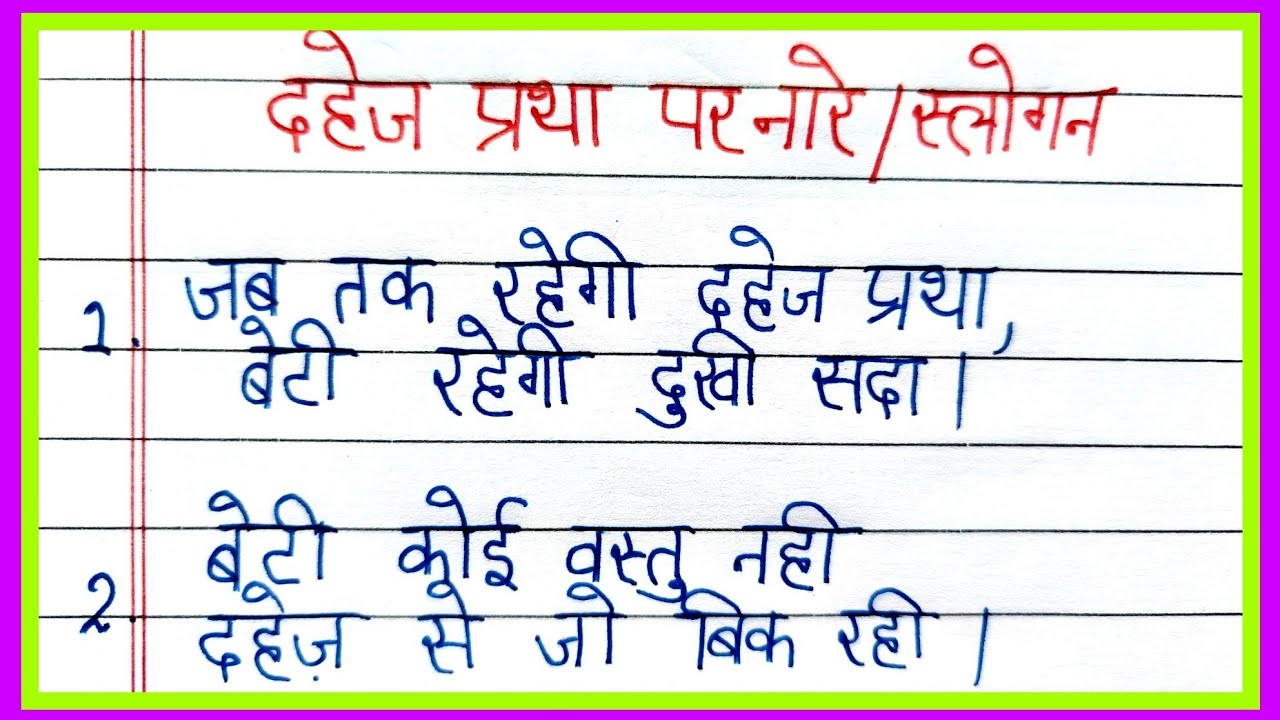 दहेज प्रथा पर नारे/स्लोगन
जब तक रहेगी दहेज प्रथा,
1. बेटी रहेगी दुखी सदा।
बेटी कोई वस्तु नही
2. दहेज़ से जो बिक रही।